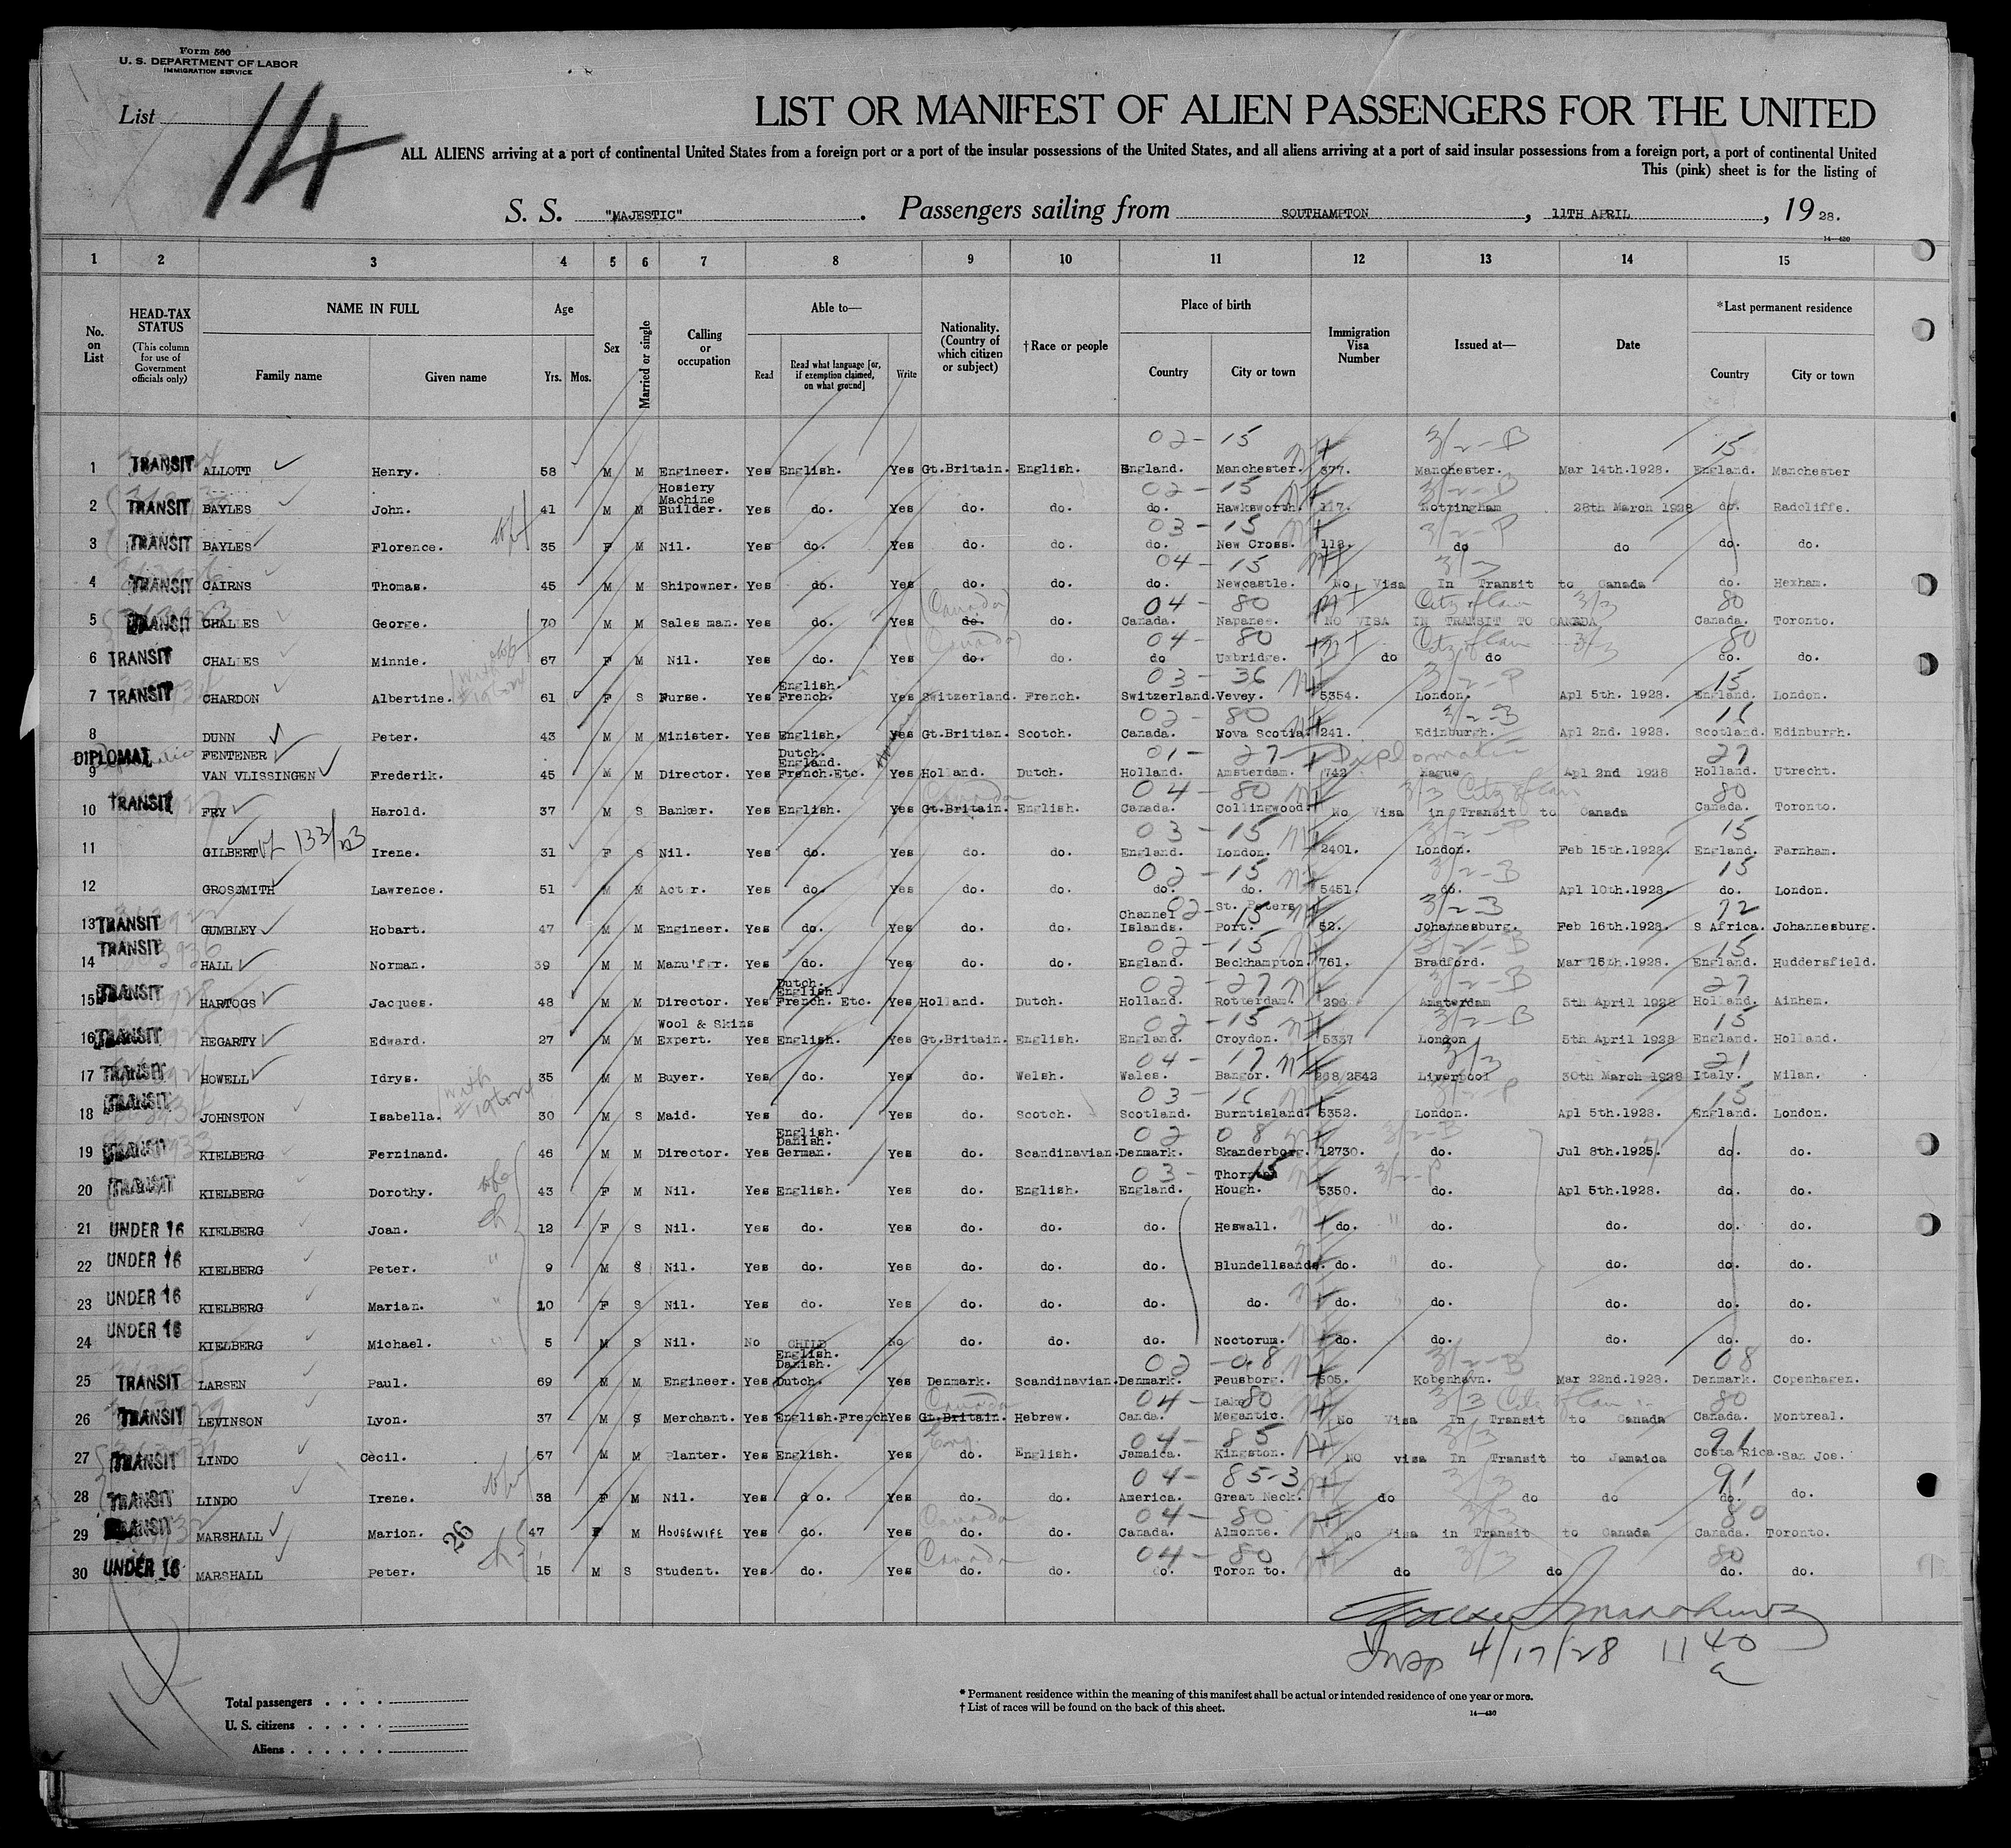 Form 500
U. S. DEPARTMENT OF LABOR
IMMIGRATION SERVICE
List 14
LIST OR MANIFEST OF ALIEN PASSENGERS FOR THE UNITED
ALL ALIENS arriving at a port of continental United States from a foreign port or a port of the insular possessions of the United States, and all aliens arriving at a port of said insular possessions from a foreign port, a port of continental United
This (pink) sheet is for the listing of
S. S. "MAJESTIC". Passengers sailing from SOUTHAMPTON, 11TH APRIL, 1928.
14—430
1 2 3 4 5 6 7 8 9 10 11 12 13 14 15
No. on List
HEAD-TAX STATUS (This column for use of Government officials only)
NAME IN FULL Family name Given name
Age Yrs. Mos.
Sex
Married or single
Calling or occupation
Able to— Read Read what language [or, if exemption claimed, on what ground] Write
Nationality. (Country of which citizen or subject)
†Race or people
Place of birth Country City or town
Immigration Visa Number
Issued at—
Date
*Last permanent residence Country City or town
02-15 3/2-B 15
1 TRANSIT ALLOTT Henry. 58 M M Engineer. Yes English. Yes Gt.Britain. English. England. Manchester. 377. Manchester. Mar 14th.1928. England. Manchester
02-15 3/2-B
2 TRANSIT BAYLES John. 41 M M Hosiery Machine Builder. Yes do. Yes do. do. do. Hawksworth. 117. Nottingham 28th March 1928 do. Radcliffe.
03-15 3/2-P
3 TRANSIT BAYLES Florence. 35 F M Nil. Yes do. Yes do. do. do. New Cross. 118. do do do. do.
04-15 3/3
4 TRANSIT CAIRNS Thomas. 45 M M Shipowner. Yes do. Yes do. do. do. Newcastle. No Visa In Transit to Canada do. Hexham.
(Canada) 04-80 3/3 80
5 TRANSIT CHALES George. 70 M M Sales man. Yes do. Yes do. do. Canada. Napanee. NO VISA IN TRANSIT TO CANADA Canada. Toronto.
(Canada) 04-80 3/3 80
6 TRANSIT CHALES Minnie. 67 F M Nil. Yes do. Yes do. do. do Uxbridge. do do do. do.
03-36 3/2-P 15
7 TRANSIT CHARDON Albertine. 61 F S Nurse. Yes English. French. Yes Switzerland. French. Switzerland. Vevey. 5354. London. Apl 5th. 1928. England. London.
02-80 3/2-B 16
8 DUNN Peter. 43 M M Minister. Yes English. Yes Gt.Britian. Scotch. Canada. Nova Scotia. 241. Edinburgh. Apl 2nd. 1928. Scotland. Edinburgh.
01-27 Diplomatic 27
9 DIPLOMAT FENTENER VAN VLISSINGEN Frederik. 45 M M Director. Yes Dutch. England. French.Etc. Yes Holland. Dutch. Holland. Amsterdam. 742 Hague Apl 2nd 1928 Holland. Utrecht.
Canada 04-80 3/3 80
10 TRANSIT FRY Harold. 37 M S Banker. Yes English. Yes Gt.Britain. English. Canada. Collingwood. No Visa in Transit to Canada Canada. Toronto.
03-15 3/2-P 15
11 GILBERT Irene. 31 F S Nil. Yes do. Yes do. do. England. London. 2401. London. Feb 15th.1928. England. Farnham.
02-15 3/2-B 15
12 GROSSMITH Lawrence. 51 M M Actor. Yes do. Yes do. do. do. do. 5451. do. Apl 10th.1928. do. London.
02-15 3/2-B 72
13 TRANSIT GUMBLEY Hobart. 47 M M Engineer. Yes do. Yes do. do. Channel Islands. St. Peters Port. 52. Johannesburg. Feb 16th.1928. S Africa. Johannesburg.
02-15 3/2-B 15
14 TRANSIT HALL Norman. 39 M M Manu'fer. Yes do. Yes do. do. England. Beckhampton. 761. Bradford. Mar 15th.1928. England. Huddersfield.
02-27 3/2-B 27
15 TRANSIT HARTOGS Jacques. 48 M M Director. Yes Dutch. English French. Etc. Yes Holland. Dutch. Holland. Rotterdam. 296 Amsterdam 5th April 1928 Holland. Ainhem.
02-15 3/2-B 15
16 TRANSIT HEGARTY Edward. 27 M M Wool & Skins Expert. Yes English. Yes Gt.Britain. English. England. Croydon. 5337 London 5th April 1928 England. Holland.
04-17 3/3 21
17 TRANSIT HOWELL Idrys. 35 M M Buyer. Yes do. Yes do. Welsh. Wales. Bangor. 268/2542 Liverpool 30th March 1928 Italy. Milan.
03-16 3/2-P 15
18 TRANSIT JOHNSTON Isabella. 30 M S Maid. Yes do. Yes do. Scotch. Scotland. Burntisland. 5352. London. Apl 5th.1928. England. London.
02 08 3/2-B
19 TRANSIT KIELBERG Ferninand. 46 M M Director. Yes English. Danish. German. Yes do. Scandinavian. Denmark. Skanderborg. 12730. do. Jul 8th.1925. do. do.
03-15 3/2-P
20 TRANSIT KIELBERG Dorothy. 43 F M Nil. Yes English. Yes do. English. England. Hough. 5350. do. Apl 5th.1928. do. do.
21 UNDER 16 KIELBERG Joan. 12 F S Nil. Yes do. Yes do. do. do. Heswall. do. do. do. do. do.
22 UNDER 16 KIELBERG Peter. 9 M S Nil. Yes do. Yes do. do. do. Blundellsands. do. do. do. do. do.
23 UNDER 16 KIELBERG Marian. 10 F S Nil. Yes do. Yes do. do. do. do. do. do. do. do. do.
24 UNDER 16 KIELBERG Michael. 5 M S Nil. No CHILD No do. do. do. Noctorum. do. do. do. do. do.
02-08 3/2-B 08
25 TRANSIT LARSEN Paul. 69 M M Engineer. Yes English. Danish. Dutch. Yes Denmark. Scandinavian. Denmark. Feusborg. 505. Kobenhavn. Mar 22nd.1928. Denmark. Copenhagen.
Canada 04-80 3/3 80
26 TRANSIT LEVINSON Lyon. 37 M S Merchant. Yes English.French Yes Gt.Britain. Hebrew. Canda. Lake Megantic. No Visa In Transit to Canada Canada. Montreal.
Eng. 04-85 3/3 91
27 TRANSIT LINDO Cecil. 57 M M Planter. Yes English. Yes do. English. Jamaica. Kingston. NO visa In Transit to Jamaica Costa Rica. San Joe.
04-85-3 3/3 91
28 TRANSIT LINDO Irene. 38 F M Nil. Yes do. Yes do. do. America. Great Neck. do do do do. do.
Canada 04-80 3/3 80
29 TRANSIT MARSHALL Marion. 26 47 F M HOUSEWIFE Yes do. Yes do. do. Canada. Almonte. No Visa in Transit to Canada Canada. Toronto.
Canada 04-80 3/3 80
30 UNDER 16 MARSHALL Peter. 15 M S Student. Yes do. Yes do. do. do. Toron to. do do do. do.
Insp 4/17/28 11 40 a
14
Total passengers
U. S. citizens
Aliens
* Permanent residence within the meaning of this manifest shall be actual or intended residence of one year or more.
† List of races will be found on the back of this sheet.
14—430